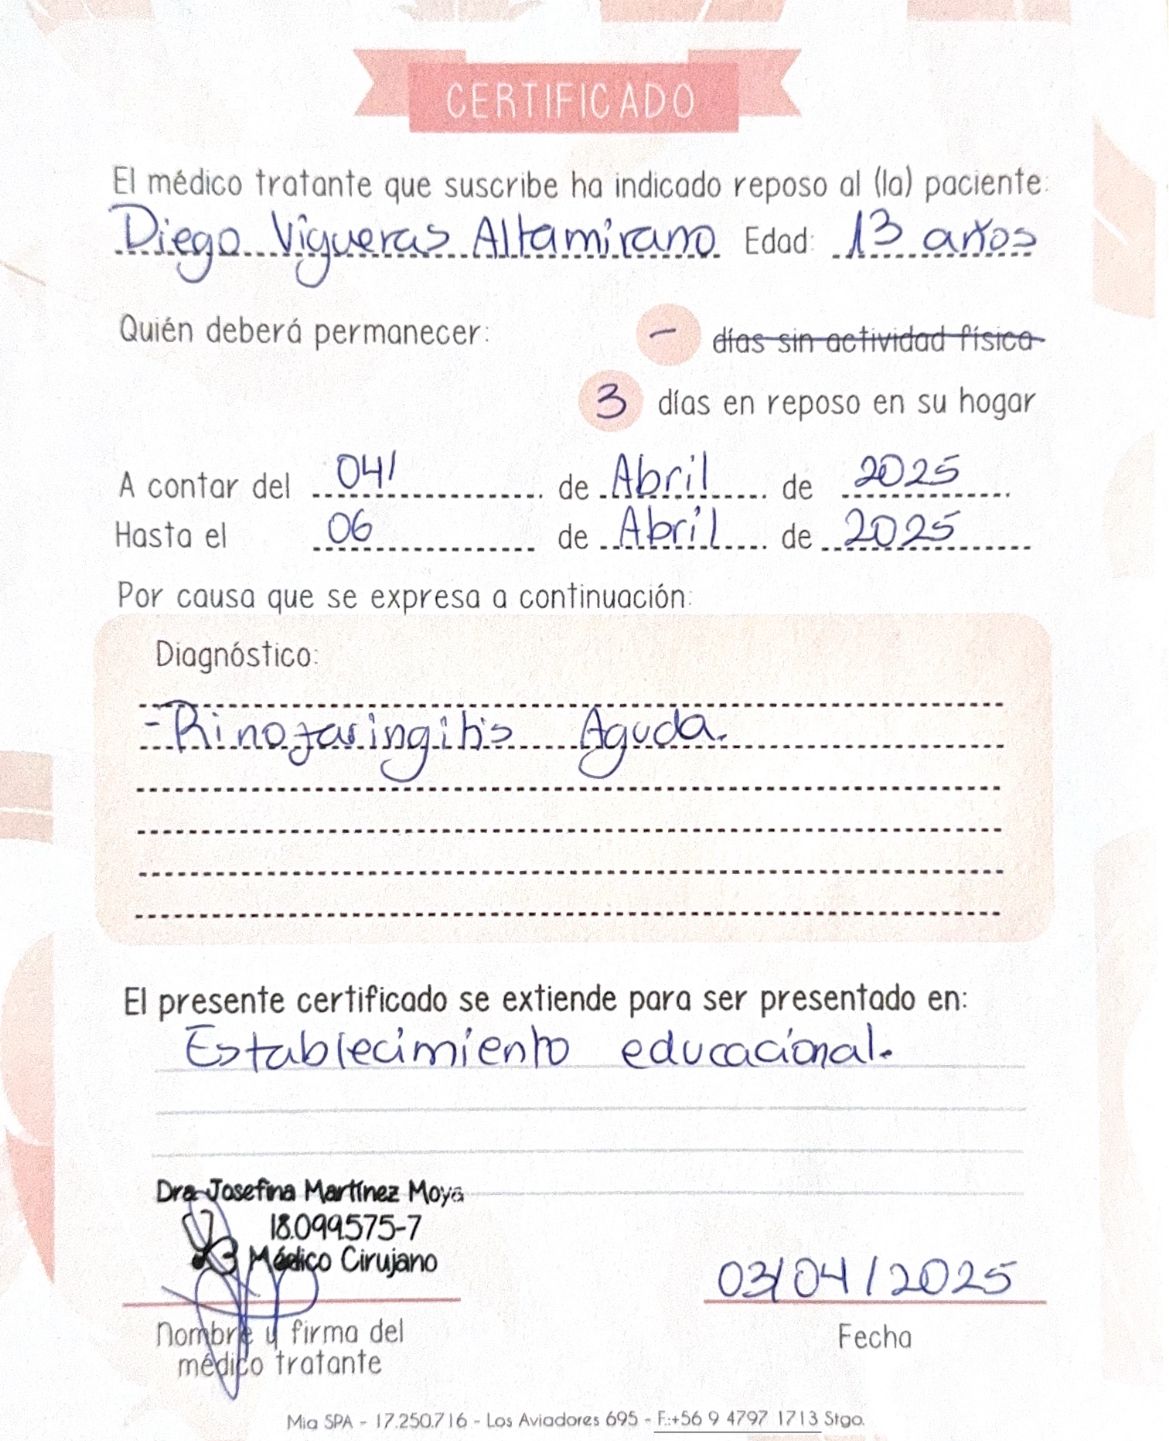 CERTIFICADO
El médico tratante que suscribe ha indicado reposo al (la) paciente:
Diego Vigueras Altamirano Edad: 13 años
Quién deberá permanecer: - días sin actividad física
3 días en reposo en su hogar
A contar del 04/ de Abril de 2025
Hasta el 06 de Abril de 2025
Por causa que se expresa a continuación:
Diagnóstico:
- Rinofaringitis Aguda.
El presente certificado se extiende para ser presentado en:
Establecimiento educacional.
Dra Josefina Martínez Moya
18.099.575-7
Médico Cirujano
03/04/2025
Nombre y firma del
médico tratante
Fecha
Mia SPA - 17.250.716 - Los Aviadores 695 - F.:+56 9 4797 1713 Stgo.